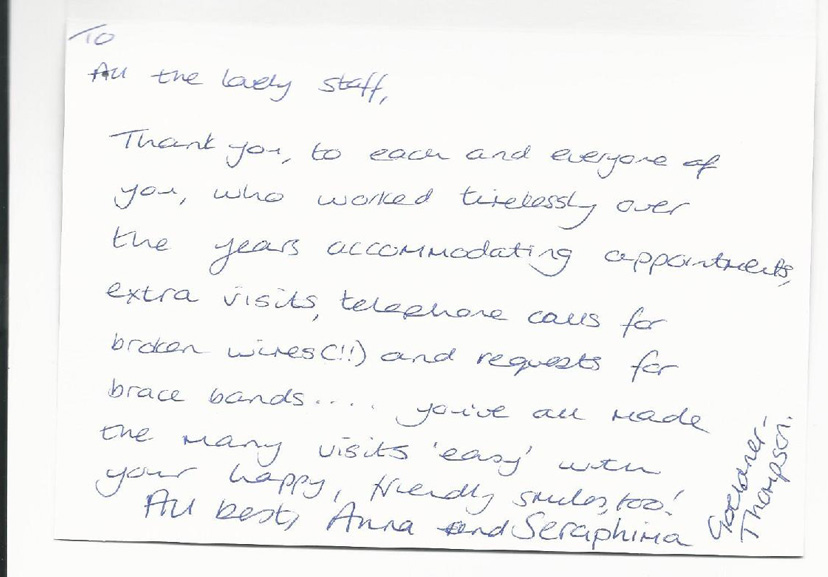 To
All the lovely staff,
Thank you, to each and everyone of
you, who worked tirelessly over
the years accommodating appointments,
extra visits, telephone calls for
broken wires(!!) and requests for
brace bands.... you've all made
the many visits 'easy' with
your happy, friendly smiles, too!
All best, Anna and Seraphina
Goeldner-
Thompson.